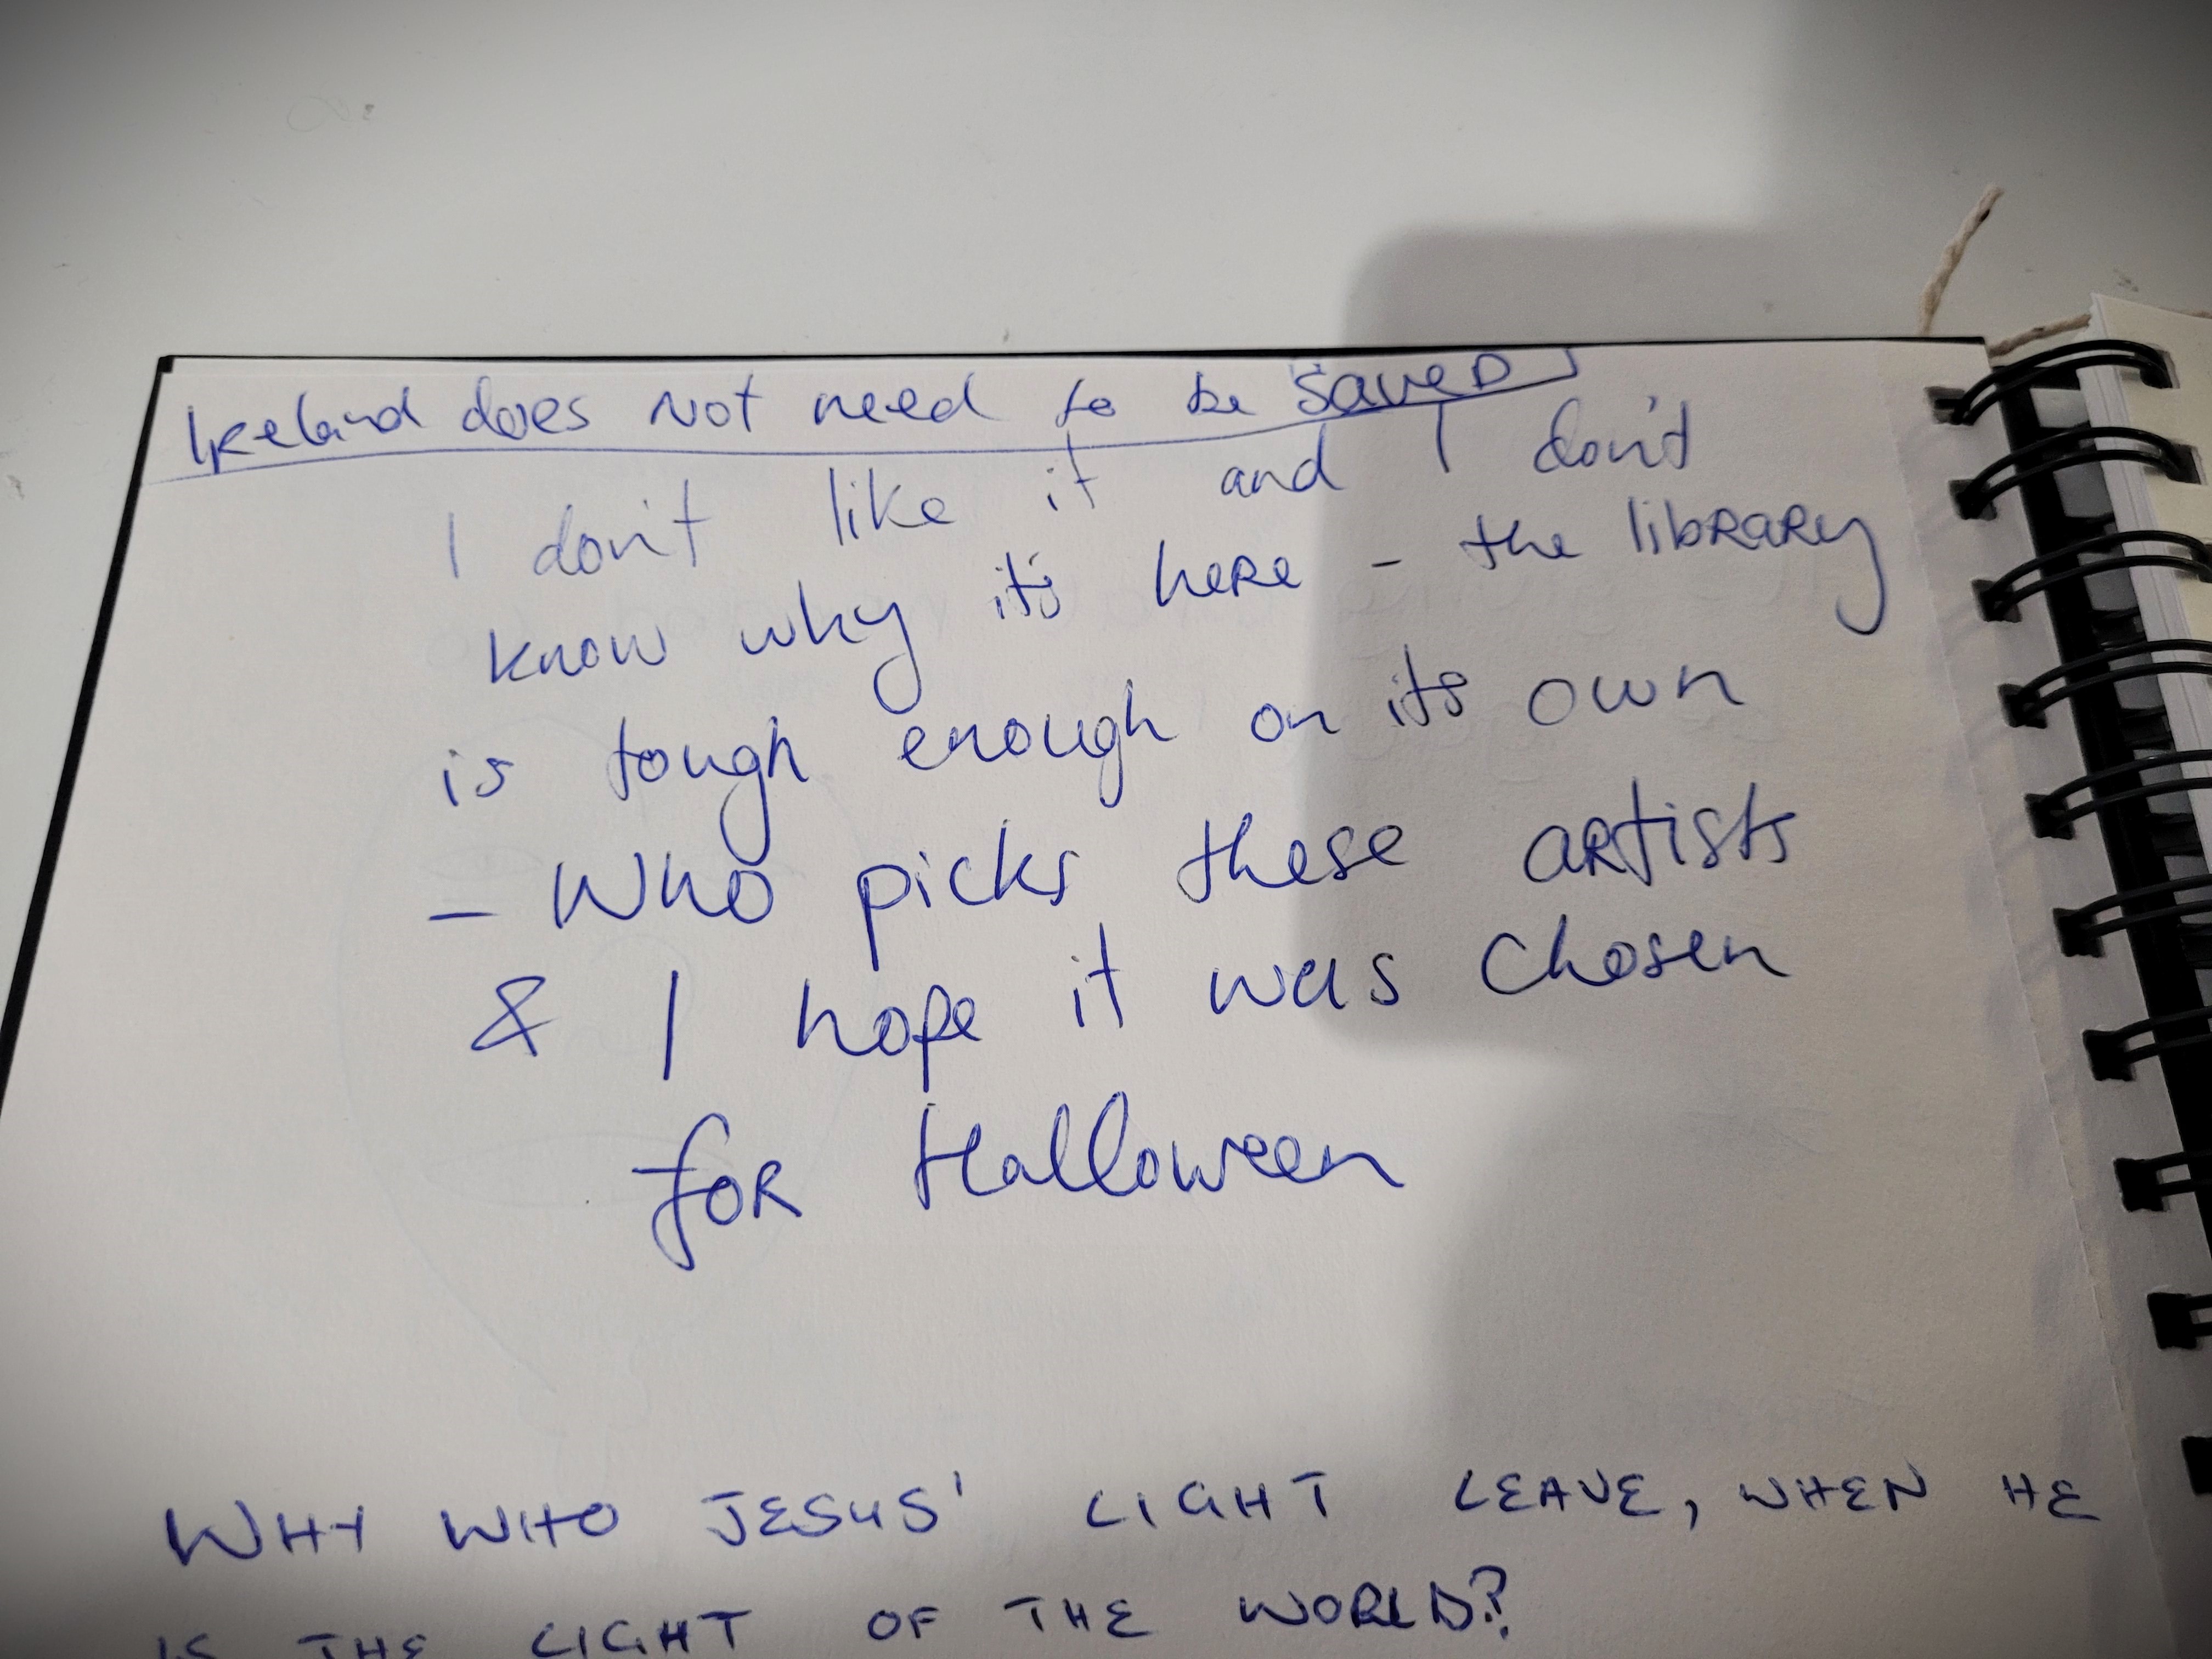 Ireland does not need to be saved
I don't like it and I don't
know why it's here - the library
is tough enough on its own
- Who picks these artists
& I hope it was chosen
for Halloween
WHY WHO JESUS' LIGHT LEAVE, WHEN HE
IS THE LIGHT OF THE WORLD?